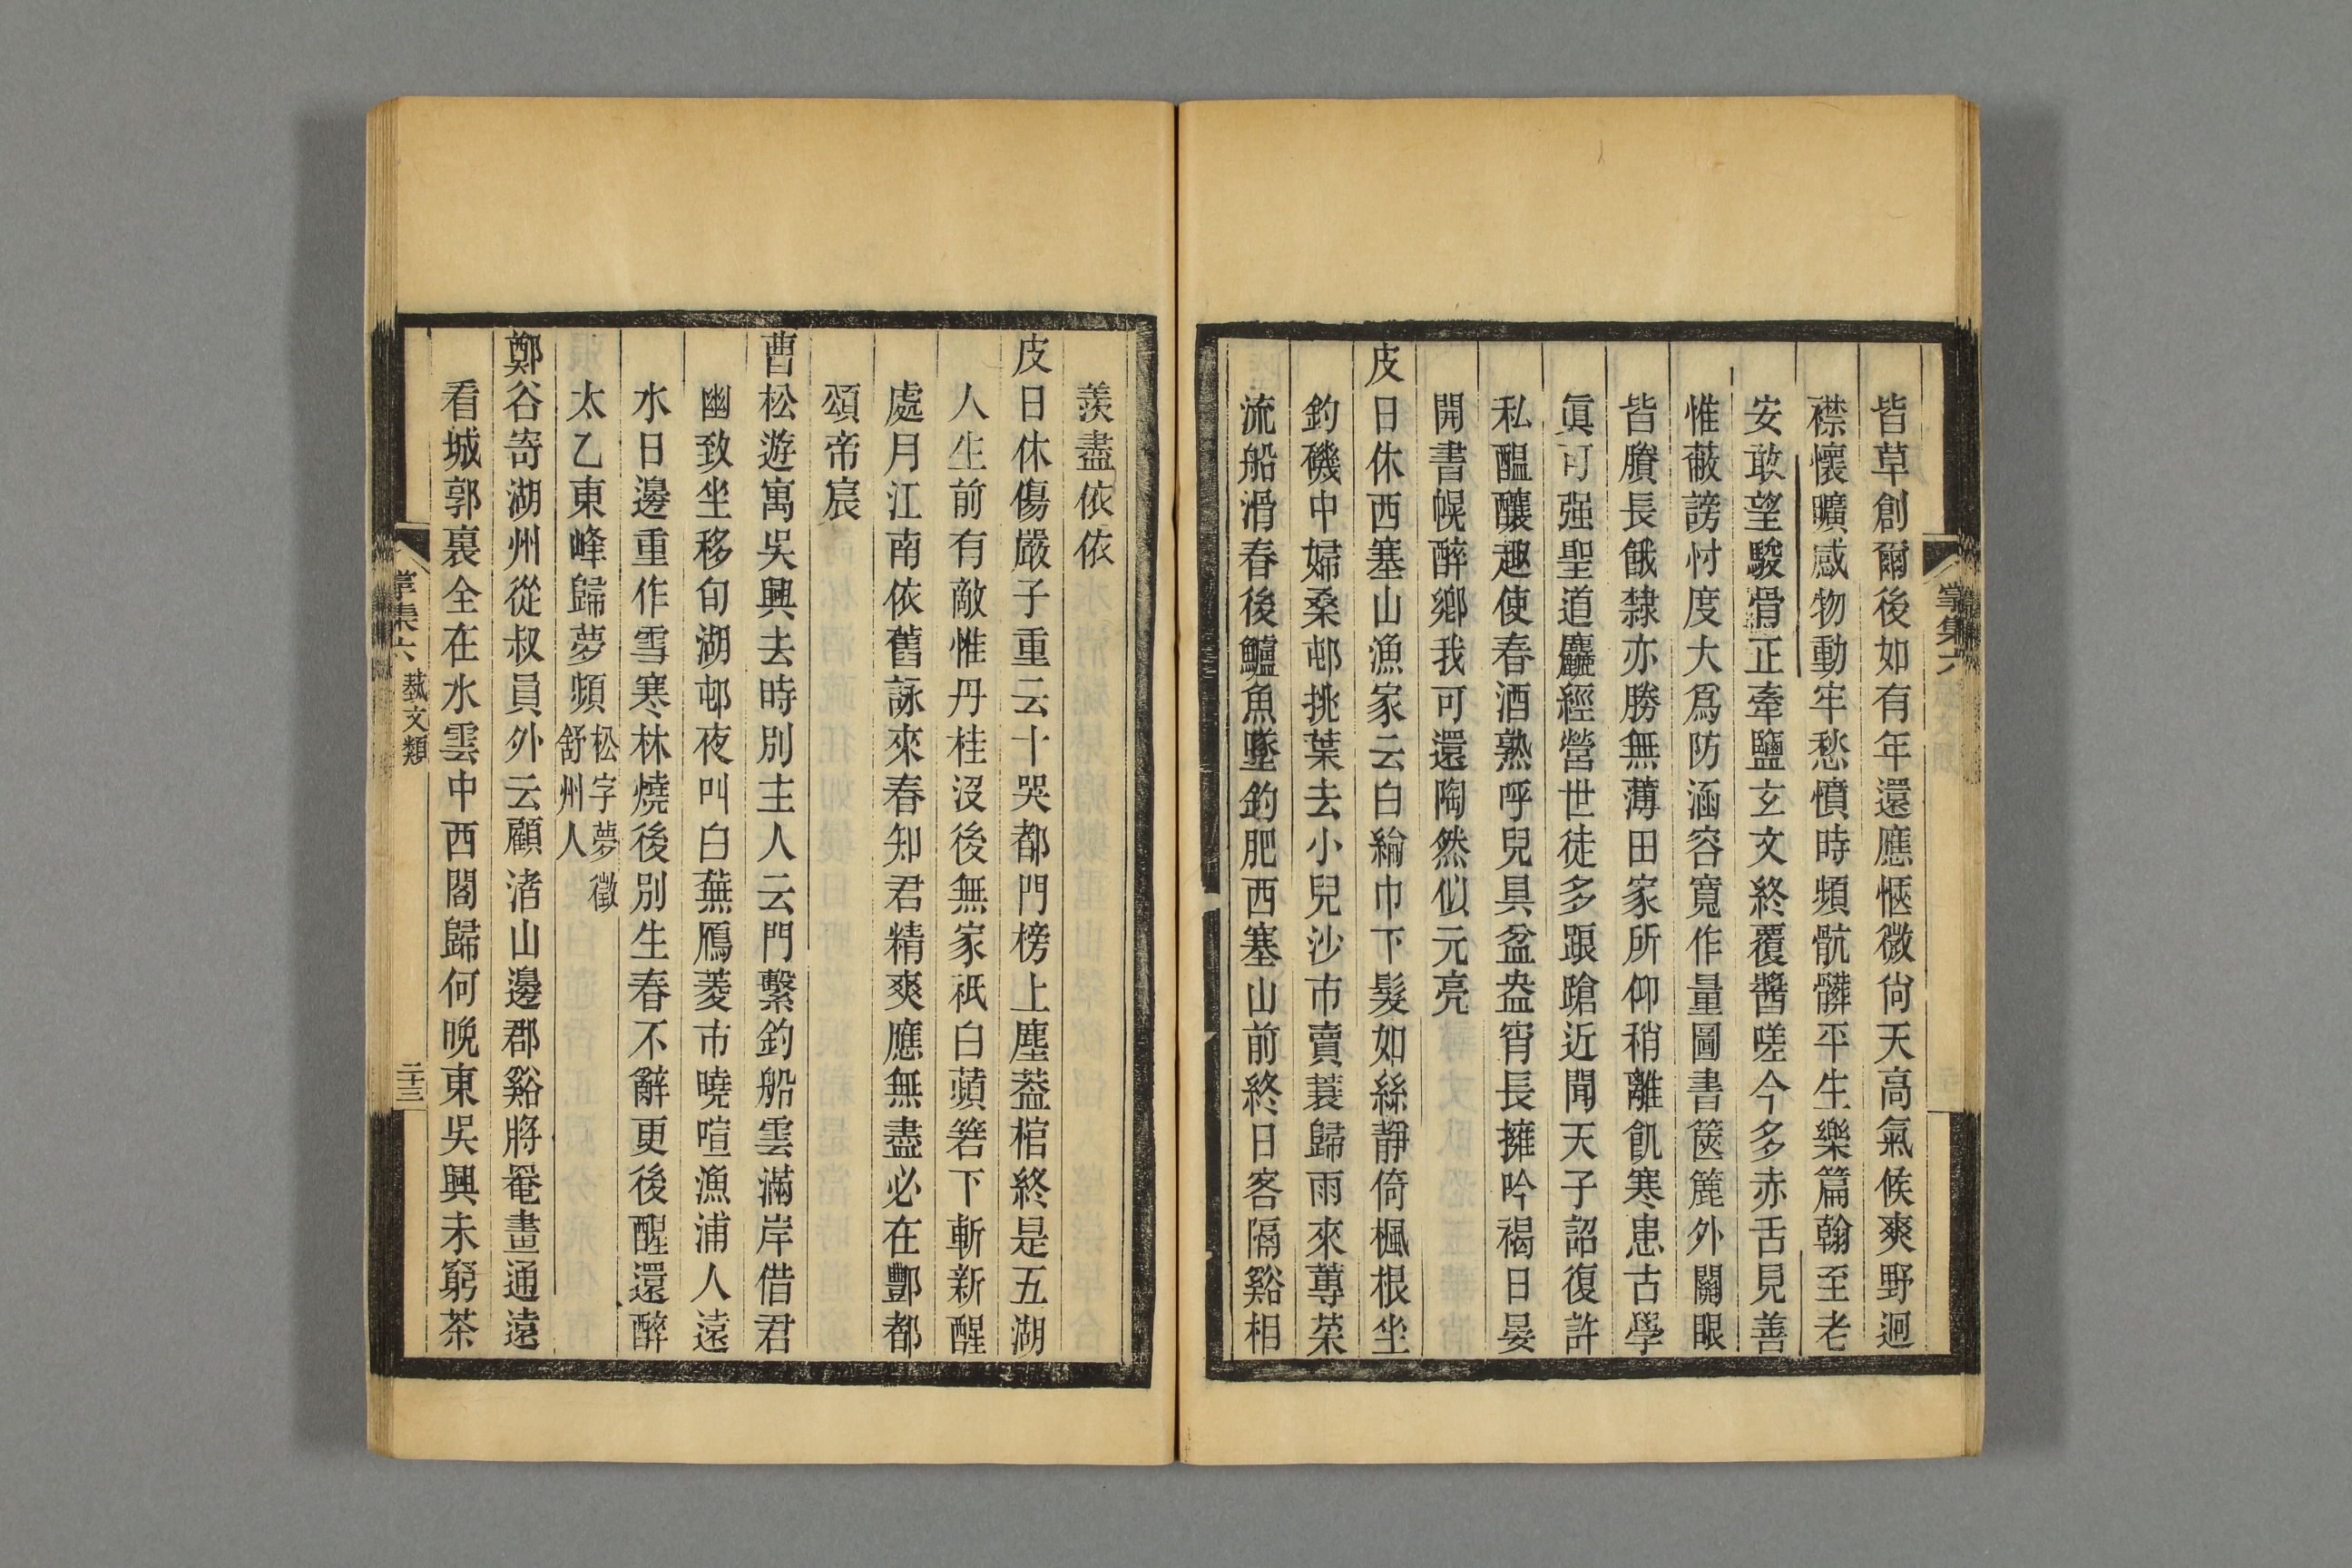 皆草創爾後如有年還應愜微尙天高氣候爽野迥
襟懷曠感物動牢愁憤時頻骯髒平生樂篇翰至老
安敢望駿骨正牽鹽玄文終覆醬嗟今多赤舌見善
惟蔽謗忖度大爲防涵容寬作量圖書篋簏外關眼
皆賸長餓隸亦勝無薄田家所仰稍離飢寒患古學
眞可强聖道麤經營世徒多踉蹌近聞天子詔復許
私醞釀趣使春酒熟呼兒具盆盎宵長擁吟褐日晏
開書幌醉鄉我可還陶然似元亮
皮日休西塞山漁家云白綸巾下髮如絲靜倚楓根坐
釣磯中婦桑邨挑葉去小兒沙市賣蓑歸雨來蓴菜
流船滑春後鱸魚墜釣肥西塞山前終日客隔谿相
掌集六
羨盡依依
皮日休傷嚴子重云十哭都門榜上塵葢棺終是五湖
人生前有敵惟丹桂沒後無家衹白蘋箬下斬新醒
處月江南依舊詠來春知君精爽應無盡必在酆都
頌帝宸
曹松遊寓吳興去時別主人云門繫釣船雲滿岸借君
幽致坐移旬湖邨夜叫白蕪鴈菱市曉喧漁浦人遠
水日邊重作雪寒林燒後別生春不辭更後醒還醉
太乙東峰歸夢頻松字夢徵舒州人
鄭谷寄湖州從叔員外云顧渚山邊郡谿將罨畫通遠
看城郭裏全在水雲中西閣歸何晚東吳興未窮茶
掌集六 藝文類 二十三